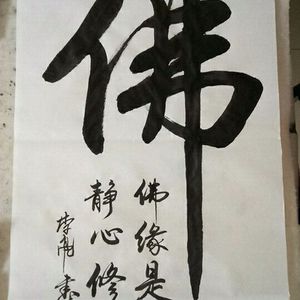 佛
佛缘是
静心修